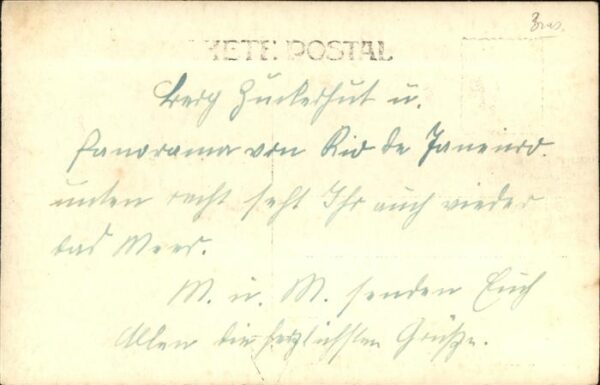 Bras.
BILHETE POSTAL
Berg Zuckerhut u.
Panorama von Rio de Janeiro.
unten recht seht Ihr auch wieder
das Meer.
M. u. M. senden Euch
Allen die herzlichsten Grüße.